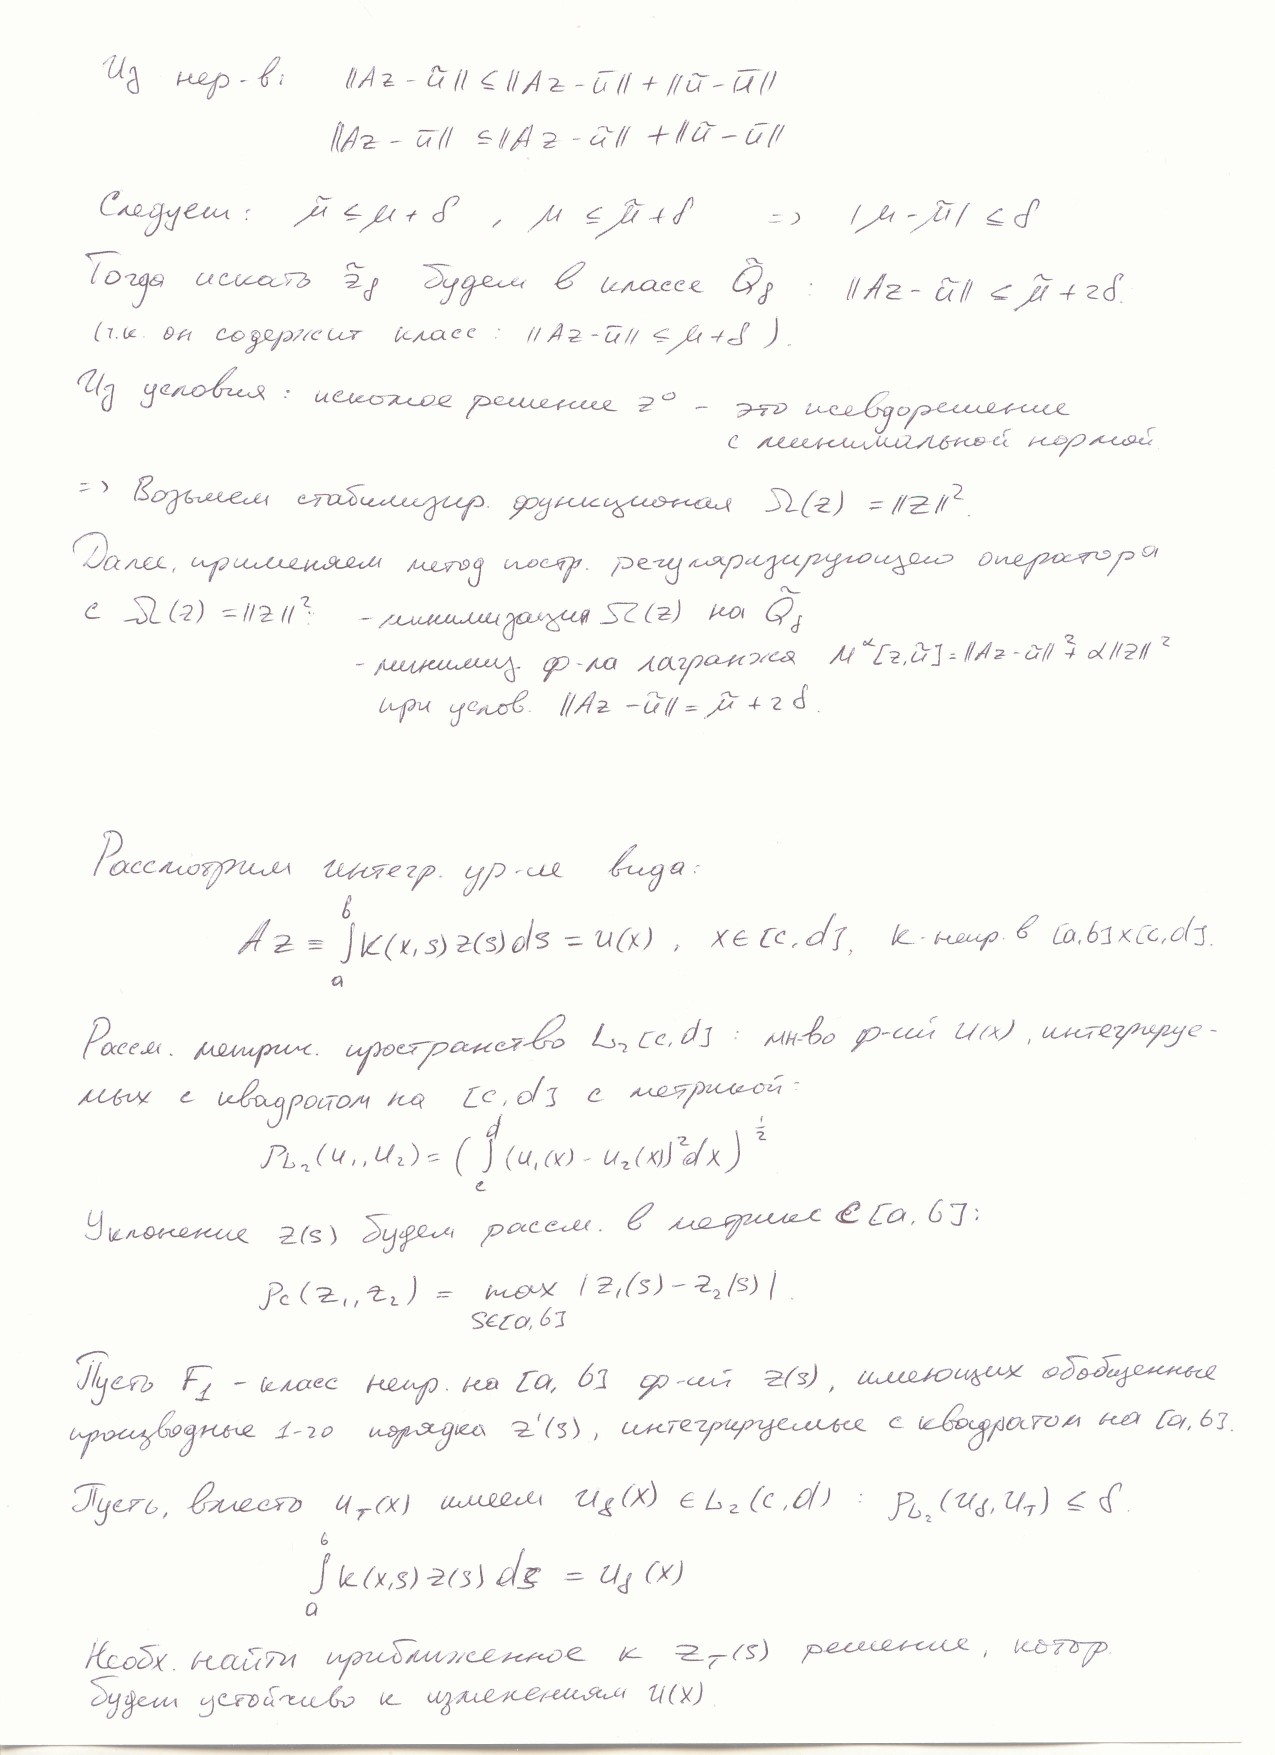 Из нер-в: ||Az - ũ|| ≤ ||Az - ū|| + ||ũ - ū||
||Az - ū|| ≤ ||Az - ũ|| + ||ũ - ū||
Следует: μ̃ ≤ μ + δ , μ ≤ μ̃ + δ => |μ - μ̃| ≤ δ
Тогда искать z̃δ будем в классе Q̃δ : ||Az - ũ|| ≤ μ̃ + 2δ.
(т.к. он содержит класс: ||Az - ũ|| ≤ μ + δ).
Из условия: искомое решение z⁰ - это псевдорешение
с минимальной нормой
=> Возьмем стабилизир. функционал Ω(z) = ||z||².
Далее, применяем метод постр. регуляризирующего оператора
с Ω(z) = ||z||²: - минимизация Ω(z) на Q̃δ
- минимиз. ф-ла лагранжа M^α[z,ũ] = ||Az - ũ||² + α||z||²
при услов. ||Az - ũ|| = μ̃ + 2δ.
Рассмотрим интегр. ур-ие вида:
Az ≡ ∫ₐᵇ K(x,s)z(s)ds = u(x), x∈[c,d], K-непр. в [a,b]x[c,d].
Рассм. метрич. пространство L₂[c,d] : мн-во ф-ий u(x), интегрируе-
мых с квадратом на [c,d] с метрикой:
ρL₂(u₁,u₂) = (∫_c^d (u₁(x) - u₂(x))² dx)^½
Уклонение z(s) будем рассм. в метрике C[a,b]:
ρc(z₁,z₂) = max |z₁(s) - z₂(s)|.
s∈[a,b]
Пусть F₁ - класс непр. на [a,b] ф-ий z(s), имеющих обобщенные
производные 1-го порядка z'(s), интегрируемые с квадратом на [a,b].
Пусть, вместо u_T(x) имеем uδ(x) ∈ L₂(c,d) : ρL₂(uδ,u_T) ≤ δ.
∫ₐᵇ K(x,s)z(s)ds = uδ(x)
Необх. найти приближенное к z_T(s) решение, котор.
будет устойчиво к изменениям u(x)